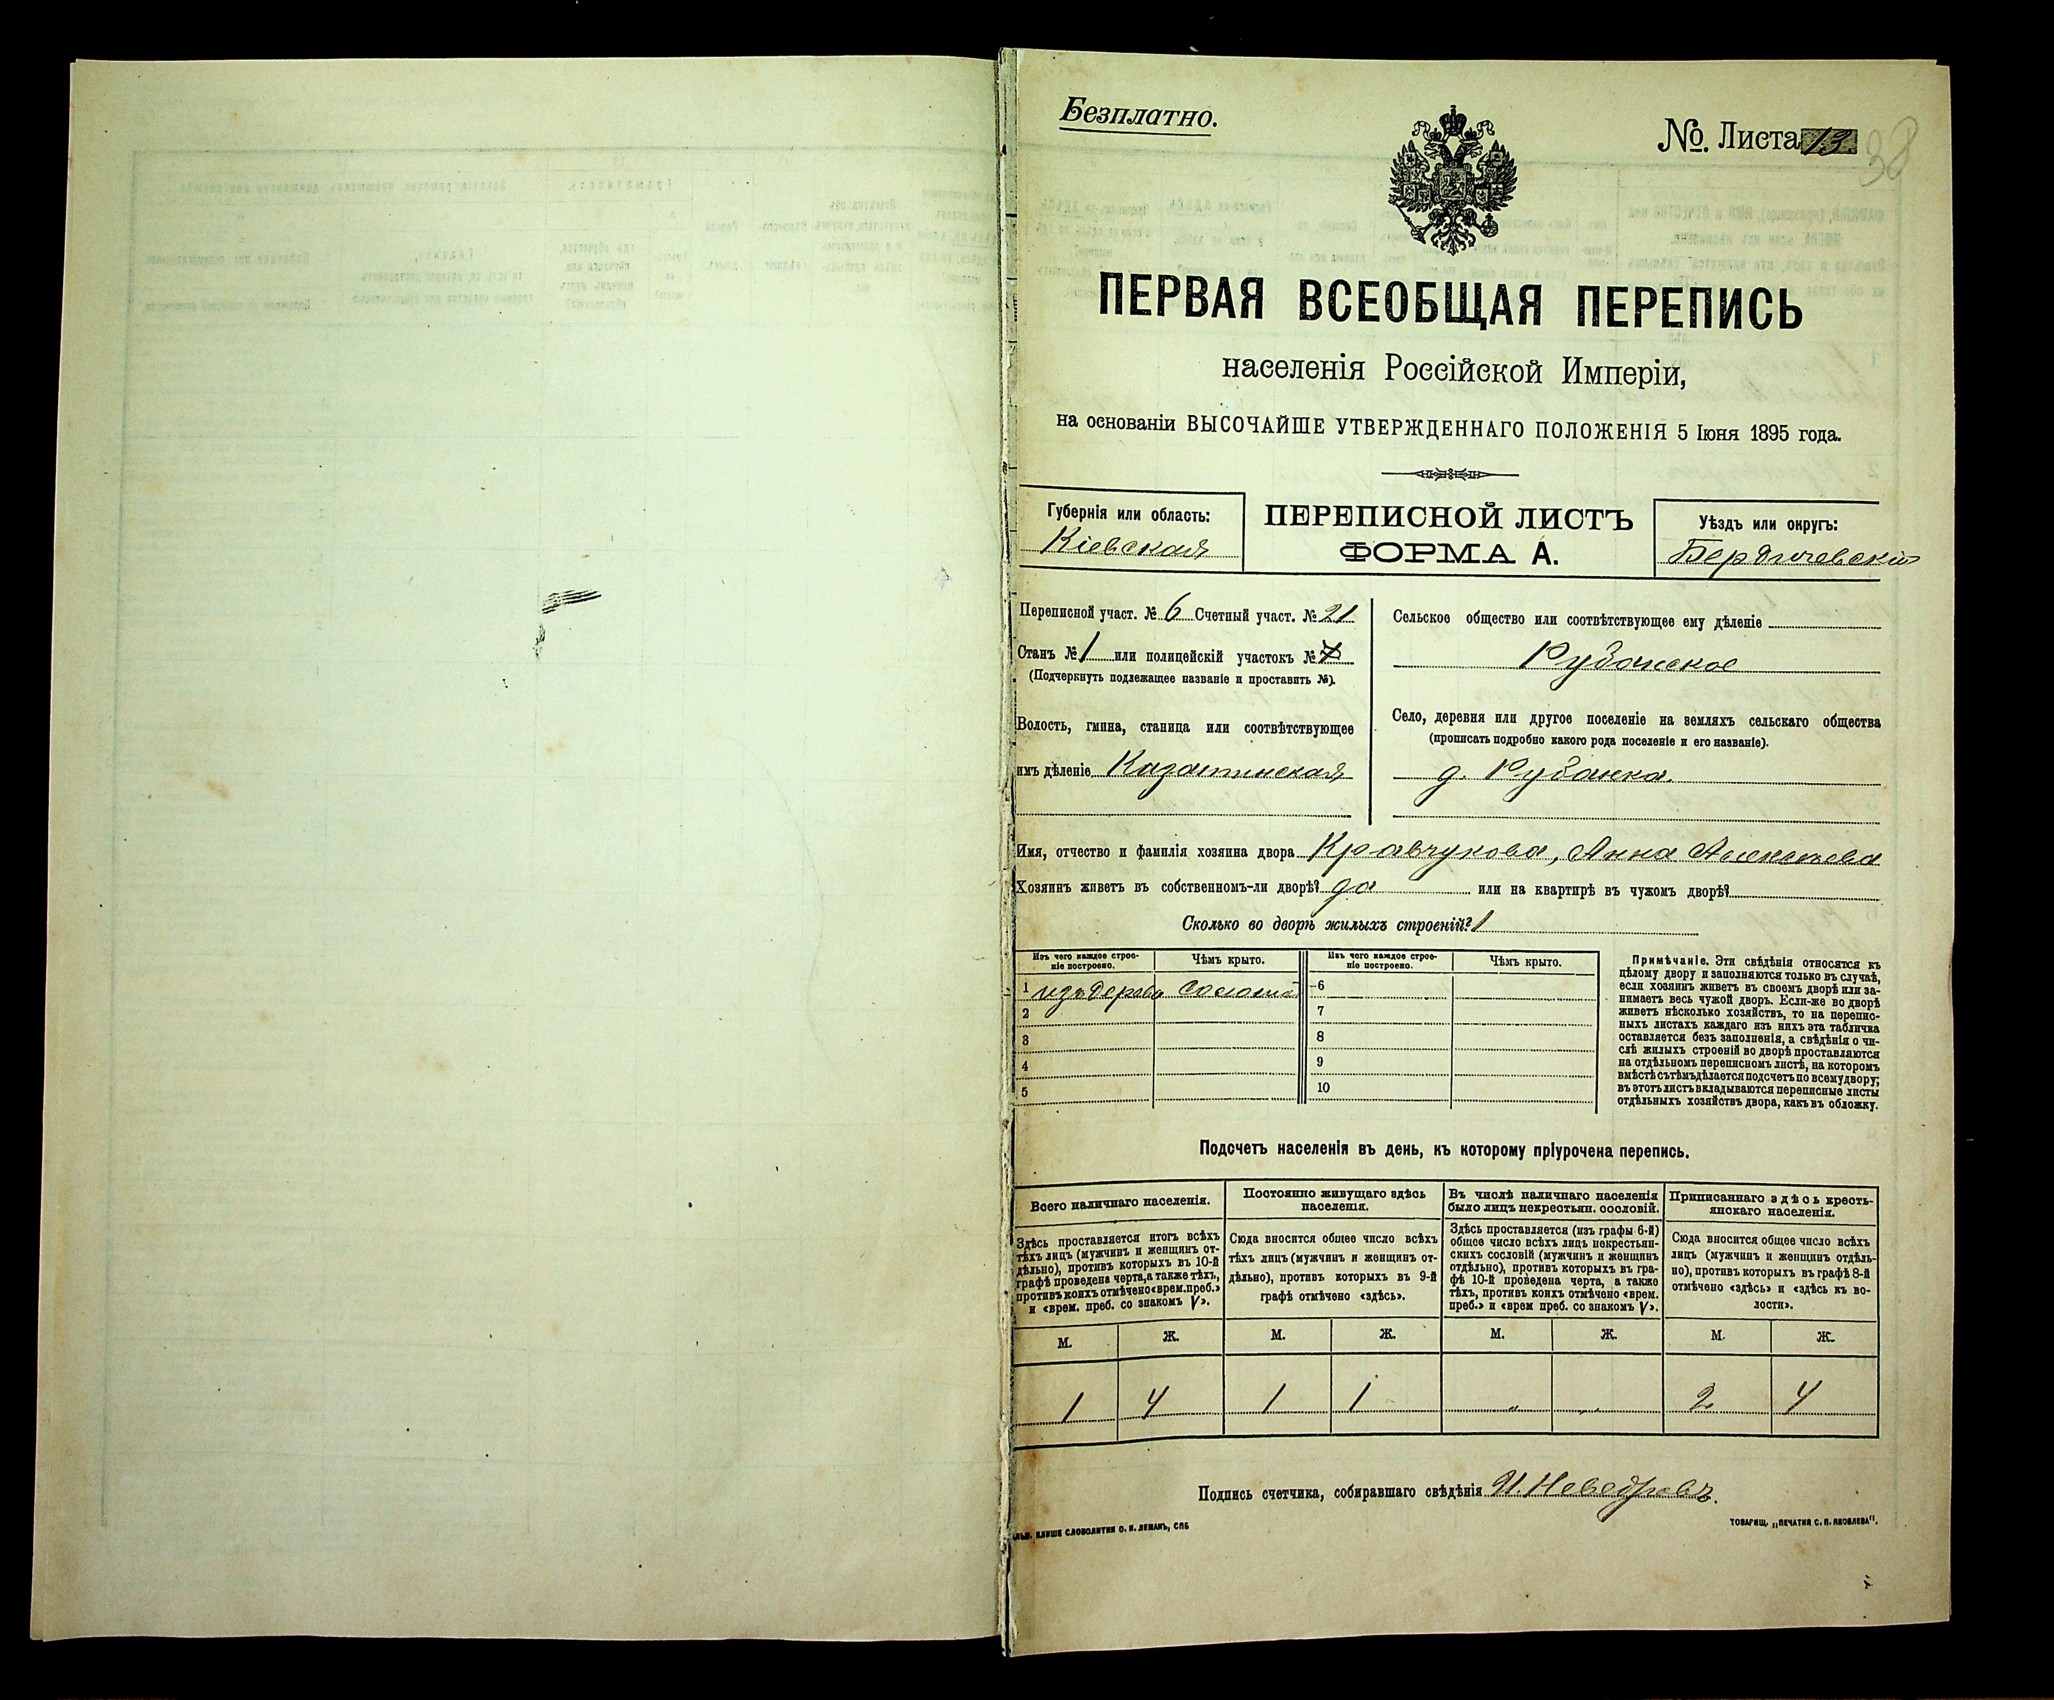 Безплатно.
№. Листа 13.
38
ПЕРВАЯ ВСЕОБЩАЯ ПЕРЕПИСЬ
населенія Россійской Имперіи,
на основаніи ВЫСОЧАЙШЕ УТВЕРЖДЕННАГО ПОЛОЖЕНІЯ 5 Іюня 1895 года.
Губернія или область:
Кіевская
ПЕРЕПИСНОЙ ЛИСТЪ
ФОРМА А.
Уѣздъ или округъ:
Бердичевскій
Переписной участ. № 6 Счетный участ. № 21
Станъ № 1 или полицейскій участокъ №
(Подчеркнуть подлежащее названіе и проставить №).
Волость, гмина, станица или соотвѣтствующее
имъ дѣленіе Казатинская
Сельское общество или соотвѣтствующее ему дѣленіе
Рубанское
Село, деревня или другое поселеніе на земляхъ сельскаго общества
(прописать подробно какого рода поселеніе и его названіе).
д. Рубанка.
Имя, отчество и фамилія хозяина двора Кравчукова, Анна Алексѣева
Хозяинъ живетъ въ собственномъ-ли дворѣ? да или на квартирѣ въ чужомъ дворѣ?
Сколько во дворѣ жилыхъ строеній? 1
Изъ чего каждое строе-
ніе построено.
Чѣмъ крыто.
Изъ чего каждое строе-
ніе построено.
Чѣмъ крыто.
1 изъ дерева соломой
2
3
4
5
6
7
8
9
10
Примѣчаніе. Эти свѣдѣнія относятся къ
цѣлому двору и заполняются только въ случаѣ,
если хозяинъ живетъ въ своемъ дворѣ или за-
нимаетъ весь чужой дворъ. Если-же во дворѣ
живетъ нѣсколько хозяйствъ, то на перепис-
ныхъ листахъ каждаго изъ нихъ эта табличка
оставляется безъ заполненія, а свѣдѣнія о чи-
слѣ жилыхъ строеній во дворѣ проставляются
на отдѣльномъ переписномъ листѣ, на которомъ
вмѣстѣ съ тѣмъ дѣлается подсчетъ по всему двору;
въ этотъ листъ вкладываются переписные листы
отдѣльныхъ хозяйствъ двора, какъ въ обложку.
Подсчетъ населенія въ день, къ которому пріурочена перепись.
Всего наличнаго населенія.
Здѣсь проставляется итогъ всѣхъ
тѣхъ лицъ (мужчинъ и женщинъ от-
дѣльно), противъ которыхъ въ 10-й
графѣ проведена черта, а также тѣхъ,
противъ коихъ отмѣчено «врем. преб.»
и «врем. преб. со знакомъ V».
Постоянно живущаго здѣсь
населенія.
Сюда вносится общее число всѣхъ
тѣхъ лицъ (мужчинъ и женщинъ от-
дѣльно), противъ которыхъ въ 9-й
графѣ отмѣчено «здѣсь».
Въ числѣ наличнаго населенія
было лицъ некрестьян. сословій.
Здѣсь проставляется (изъ графы 6-й)
общее число всѣхъ лицъ некрестьян-
скихъ сословій (мужчинъ и женщинъ
отдѣльно), противъ которыхъ въ гра-
фѣ 10-й проведена черта, а также
тѣхъ, противъ коихъ отмѣчено «врем.
преб.» и «врем преб. со знакомъ V».
Приписаннаго здѣсь кресть-
янскаго населенія.
Сюда вносится общее число всѣхъ
лицъ (мужчинъ и женщинъ отдѣль-
но), противъ которыхъ въ графѣ 8-й
отмѣчено «здѣсь» и «здѣсь къ во-
лости».
М. Ж. М. Ж. М. Ж. М. Ж.
1 4 1 1 " " 2 4
Подпись счетчика, собиравшаго свѣдѣнія
КЛИШЕ СЛОВОЛИТНИ О. И. ЛЕМАНЪ, СПБ
ТОВАРИЩ. „ПЕЧАТНЯ С. П. ЯКОВЛЕВА".